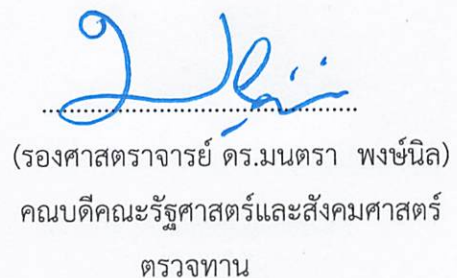 (รองศาสตราจารย์ ดร.มนตรา พงษ์นิล)
คณบดีคณะรัฐศาสตร์และสังคมศาสตร์
ตรวจทาน